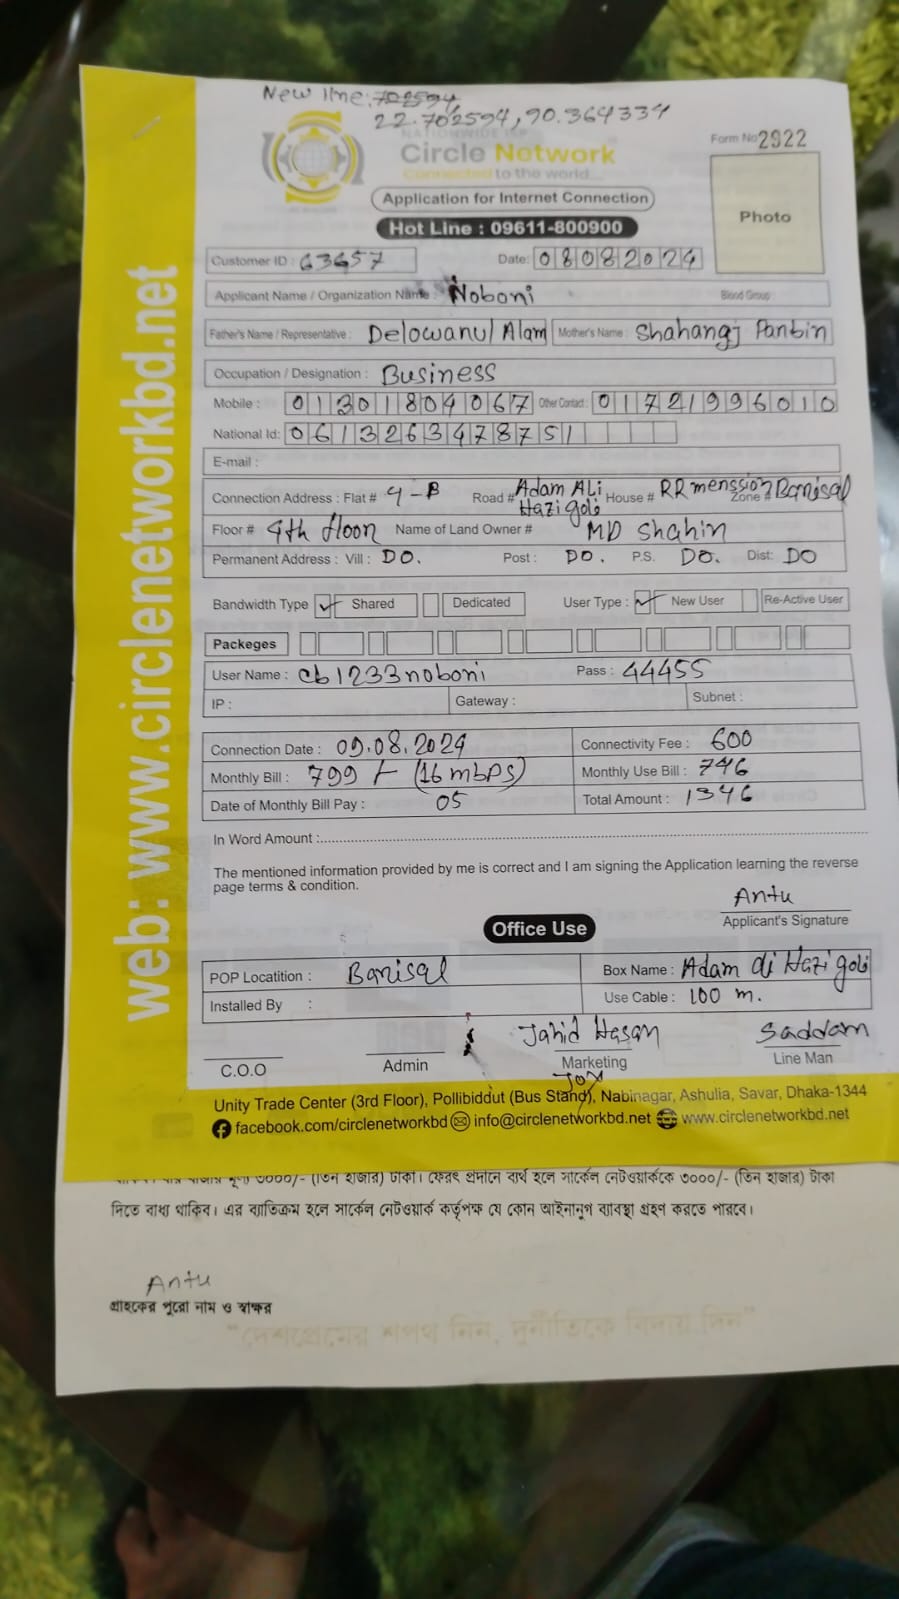 New line: 702594,
22.702594, 90.364334
NATIONWIDE ISP
Circle Network
Connected to the world...
Form No 2922
Photo
Application for Internet Connection
Hot Line : 09611-800900
Customer ID : 63657 Date: 08082024
Applicant Name / Organization Name : Noboni Blood Group :
Father's Name / Representative : Delowarul Alam Mother's Name : Shahangj Panbin
Occupation / Designation : Business
Mobile : 01301804067 Other Contact : 01721996010
National Id: 0613263478751
E-mail :
Connection Address : Flat # 4-B Road # Adam ALi Hazi goli House # RR menssion Zone # Barisal
Floor # 4th floor Name of Land Owner # MD Shahin
Permanent Address : Vill : DO. Post : DO. P.S. DO. Dist: DO
Bandwidth Type ✓ Shared Dedicated User Type : ✓ New User Re-Active User
Packeges
User Name : cb1233noboni Pass : 44455
IP : Gateway : Subnet :
Connection Date : 09.08.2024 Connectivity Fee : 600
Monthly Bill : 799/- (16 mbps) Monthly Use Bill : 746
Date of Monthly Bill Pay : 05 Total Amount : 1346
In Word Amount :
The mentioned information provided by me is correct and I am signing the Application learning the reverse
page terms & condition.
Antu
Applicant's Signature
Office Use
POP Locatition : Barisal Box Name : Adam ali Hazi goli
Installed By : Use Cable : 100 m.
Jahid Hasan Saddam
C.O.O Admin Marketing Line Man
Joy
Unity Trade Center (3rd Floor), Pollibiddut (Bus Stand), Nabinagar, Ashulia, Savar, Dhaka-1344
facebook.com/circlenetworkbd info@circlenetworkbd.net www.circlenetworkbd.net
web: www.circlenetworkbd.net
৩০০০/- (তিন হাজার) টাকা। ফেরৎ প্রদানে ব্যর্থ হলে সার্কেল নেটওয়ার্ককে ৩০০০/- (তিন হাজার) টাকা
দিতে বাধ্য থাকিব। এর ব্যতিক্রম হলে সার্কেল নেটওয়ার্ক কর্তৃপক্ষ যে কোন আইনানুগ ব্যবস্থা গ্রহণ করতে পারবে।
Antu
গ্রাহকের পুরো নাম ও স্বাক্ষর
"দেশপ্রেমের শপথ নিন, দুর্নীতিকে বিদায় দিন"